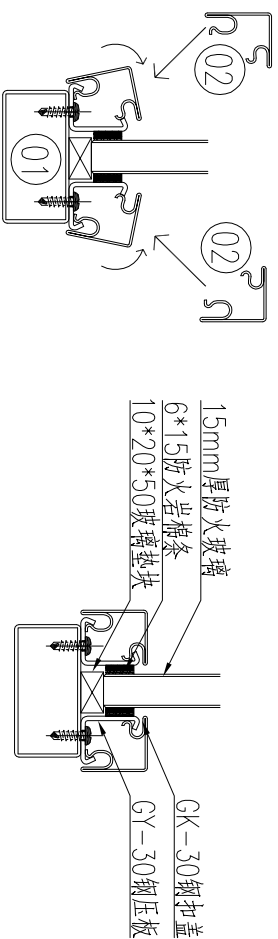 02
02
01
15mm厚防火玻璃
6*15防火岩棉条
10*20*50玻璃垫块
GK-30钢扣盖
GY-30钢压板